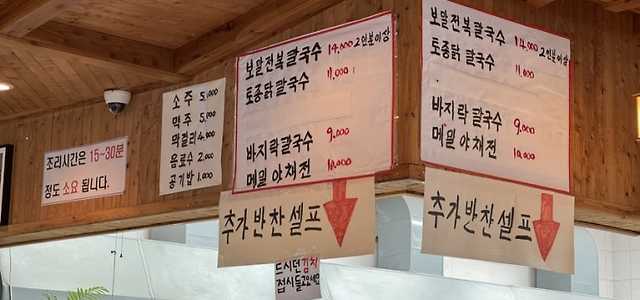 조리시간은 15-30분
정도 소요 됩니다.
소주 5,000
맥주 5,000
막걸리 4,000
음료수 2,000
공기밥 1,000
보말전복칼국수 14,000 2인분이상
토종닭칼국수 11,000
바지락칼국수 9,000
메밀야채전 10,000
추가반찬셀프
보말전복칼국수 14,000 2인분이상
토종닭칼국수 11,000
바지락칼국수 9,000
메밀야채전 10,000
추가반찬셀프
드시던 김치
접시들고오세요